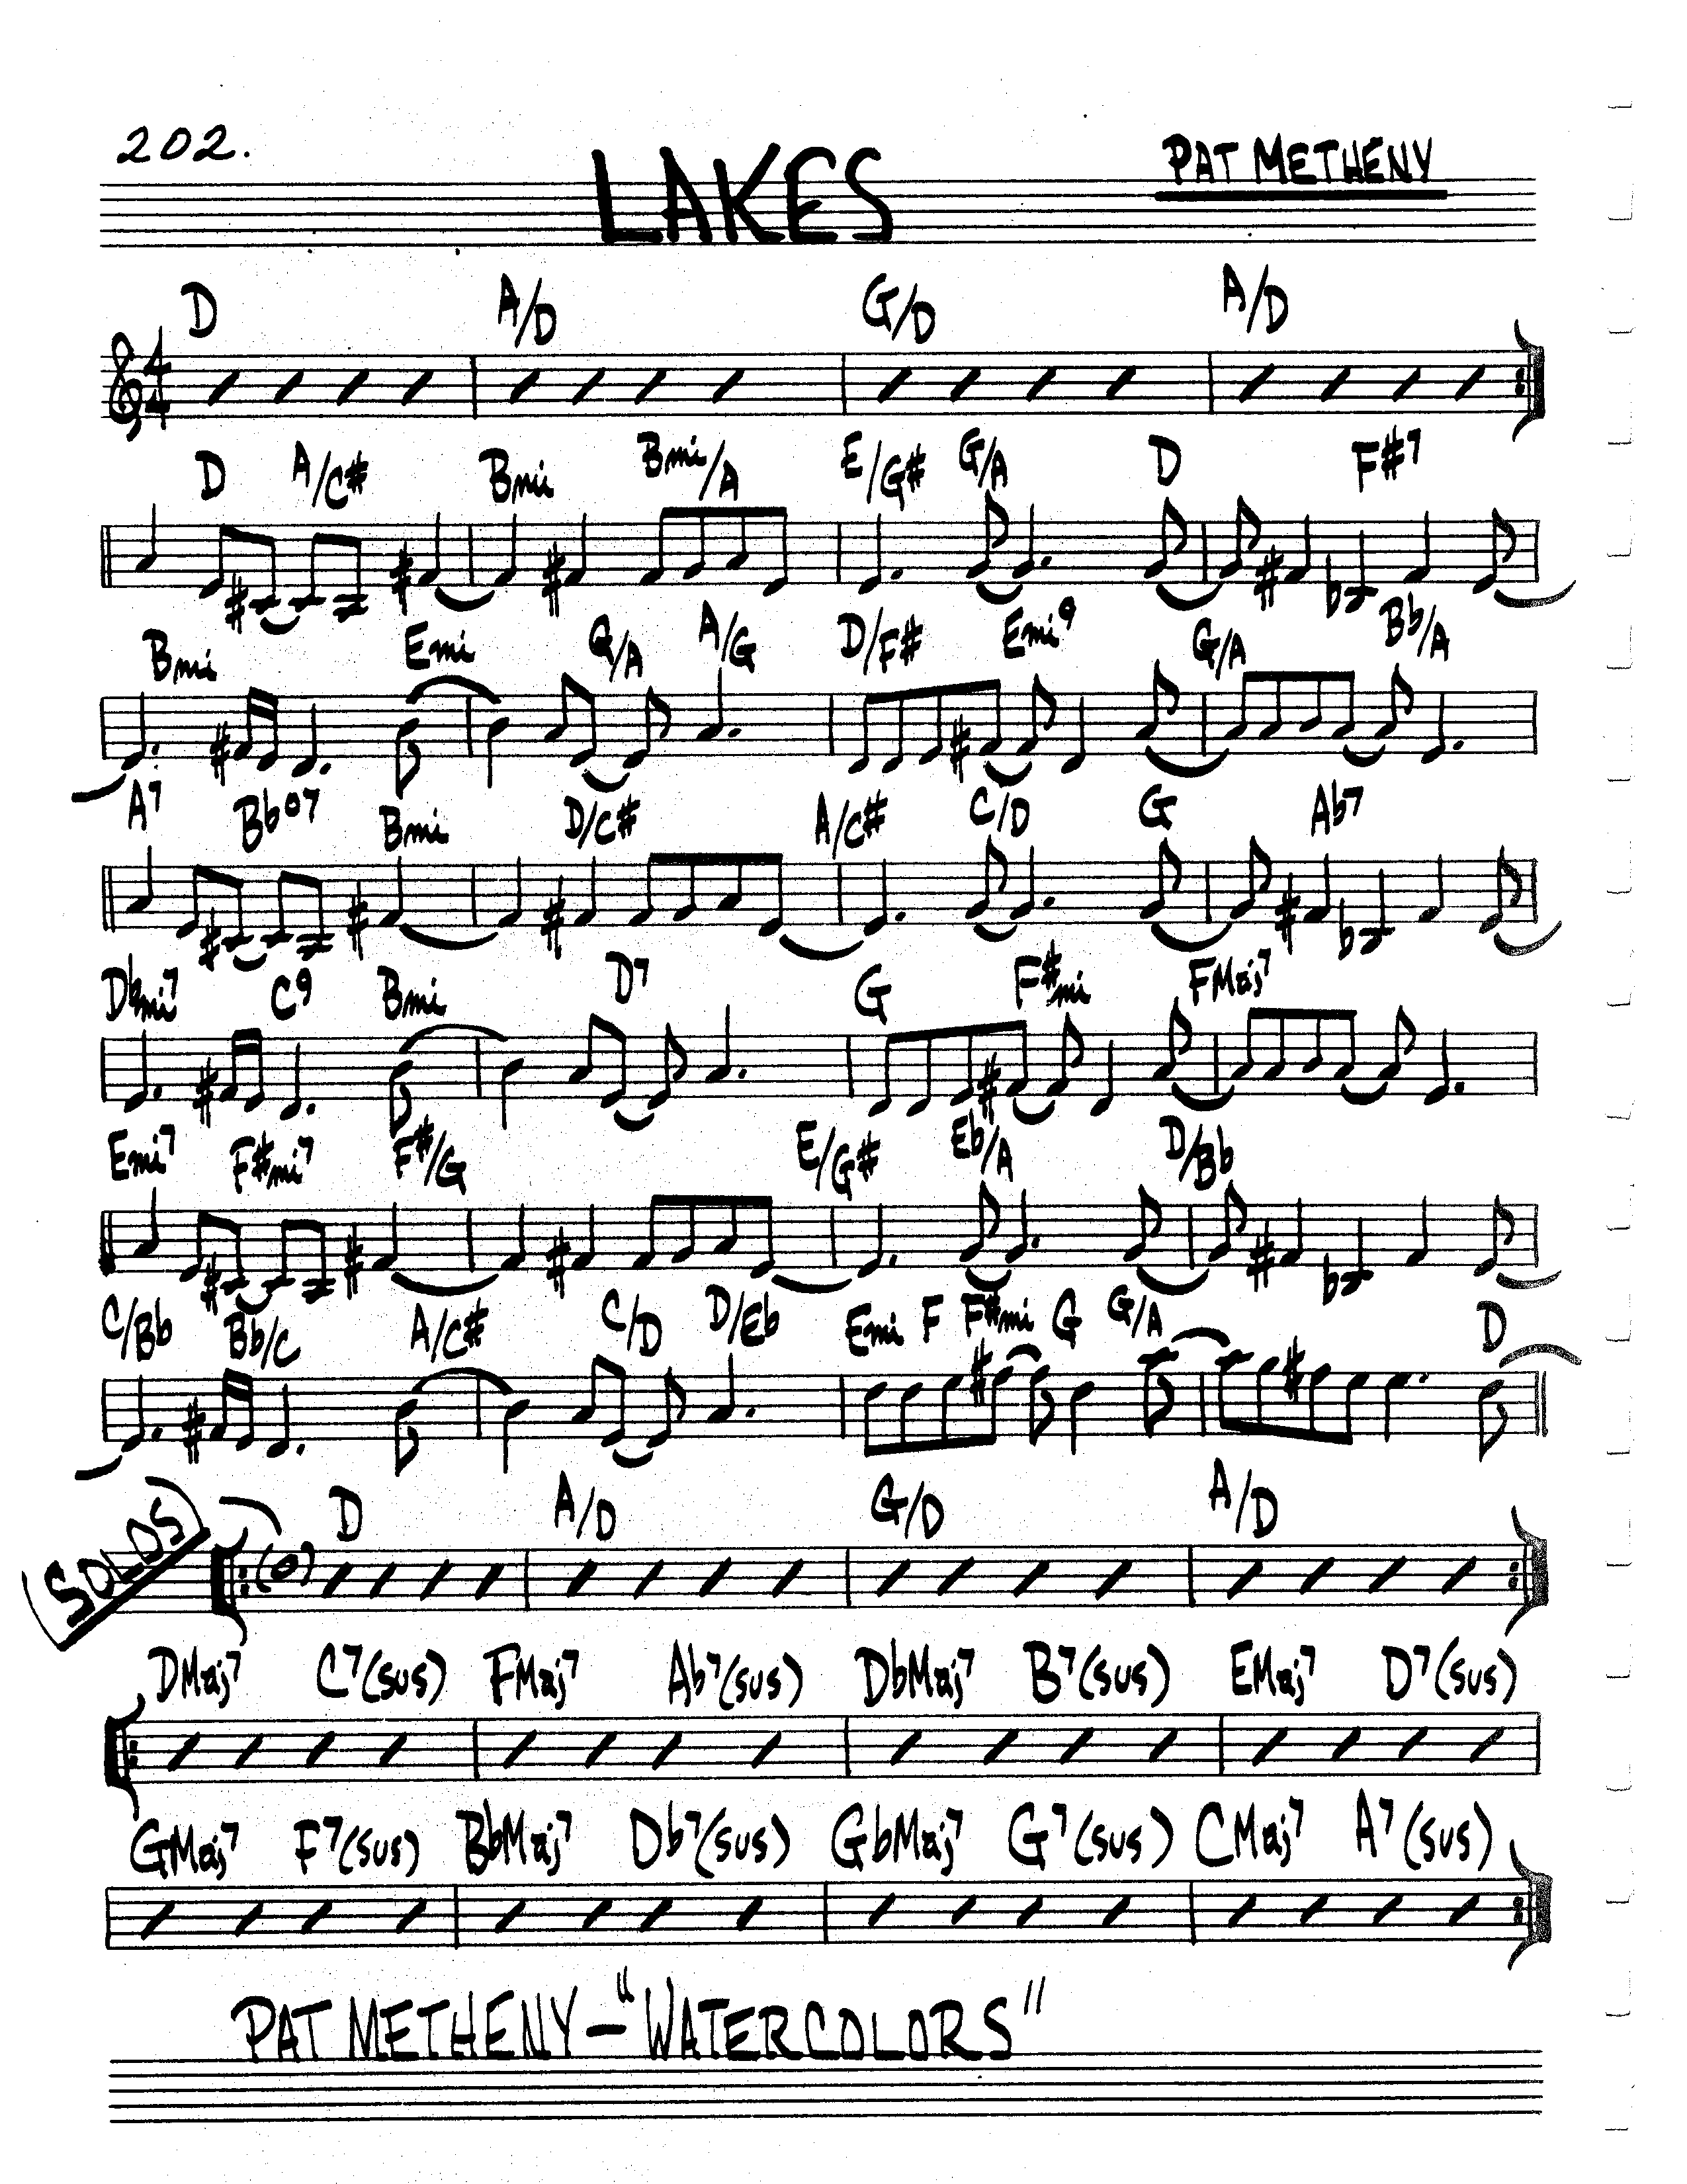 202.
LAKES
PAT METHENY
D A/D G/D A/D
4
4
D A/C# Bmi Bmi/A E/G# G/A D F#7
Bmi Emi G/A A/G D/F# Emi9 G/A Bb/A
A7 Bbo7 Bmi D/C# A/C# C/D G Ab7
Dbmi7 C9 Bmi D7 G F#mi FMaj7
Emi7 F#mi7 F#/G E/G# Eb/A D/Bb
C/Bb Bb/C A/C# C/D D/Eb Emi F F#mi G G/A D
SOLOS
D A/D G/D A/D
DMaj7 C7(sus) FMaj7 Ab7(sus) DbMaj7 B7(sus) EMaj7 D7(sus)
GMaj7 F7(sus) BbMaj7 Db7(sus) GbMaj7 G7(sus) CMaj7 A7(sus)
PAT METHENY – "WATERCOLORS"